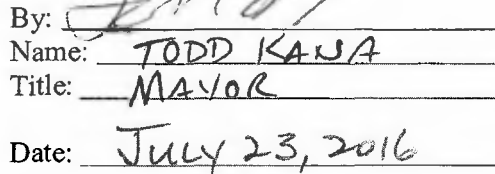 By:
Name: TODD KANA
Title: MAYOR
Date: JULY 23, 2016